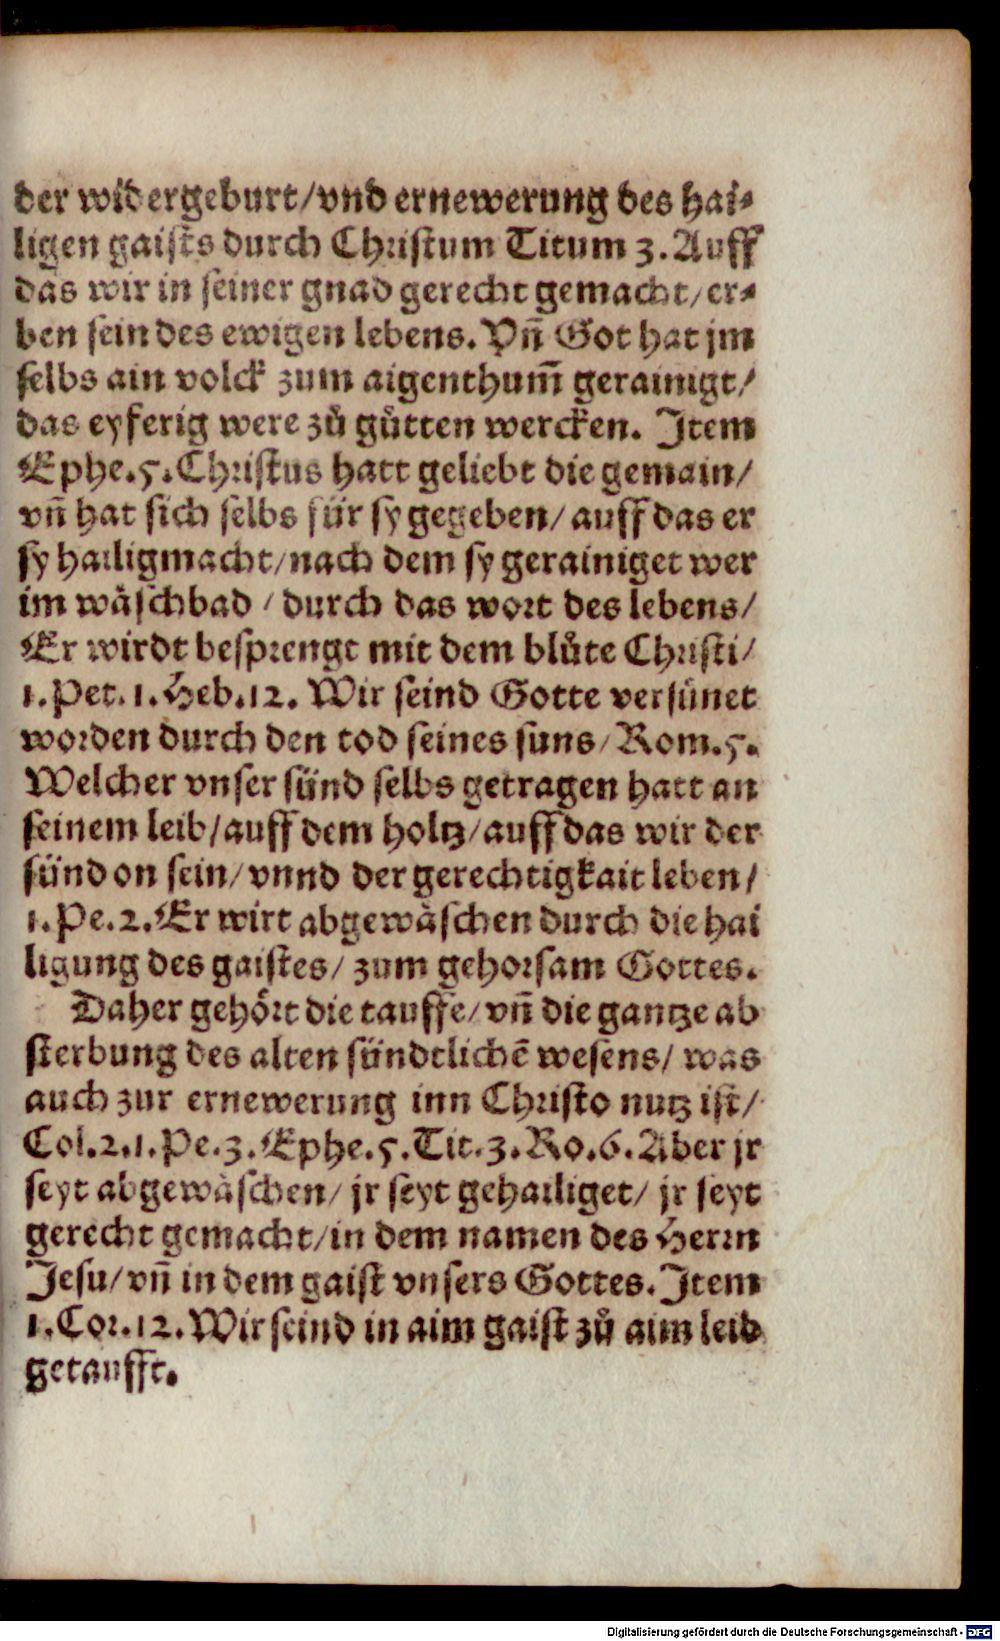 der widergeburt/vnd ernewerung des hai⸗
ligen gaists durch Christum Titum 3. Auff
das wir in seiner gnad gerecht gemacht/er⸗
ben sein des ewigen lebens. Vñ Got hat jm
selbs ain volck zum aigenthum̄ gerainigt/
das eyferig were zů gůtten wercken. Item
Ephe.5. Christus hatt geliebt die gemain/
vñ hat sich selbs für sy gegeben/auff das er
sy hailigmacht/nach dem sy gerainiget wer
im wäschbad/durch das wort des lebens/
Er wirdt besprengt mit dem blůte Christi/
1.Pet.1.Heb.12. Wir seind Gotte versünet
worden durch den tod seines suns/Rom.5.
Welcher vnser sünd selbs getragen hatt an
seinem leib/auff dem holtz/auff das wir der
sünd on sein/vnnd der gerechtigkait leben/
1.Pe.2.Er wirt abgewäschen durch die hai
ligung des gaistes/zum gehorsam Gottes.
Daher gehört die tauffe/vñ die gantze ab
sterbung des alten sündtlichē wesens/was
auch zur ernewerung inn Christo nutz ist/
Col.2.1.Pe.3.Ephe.5.Tit.3.Ro.6.Aber jr
seyt abgewäschen/jr seyt gehailiget/jr seyt
gerecht gemacht/in dem namen des Herrn
Jesu/vñ in dem gaist vnsers Gottes. Item
1.Cor.12.Wir seind in aim gaist zů aim leib
getaufft.
Digitalisierung gefördert durch die Deutsche Forschungsgemeinschaft - DFG